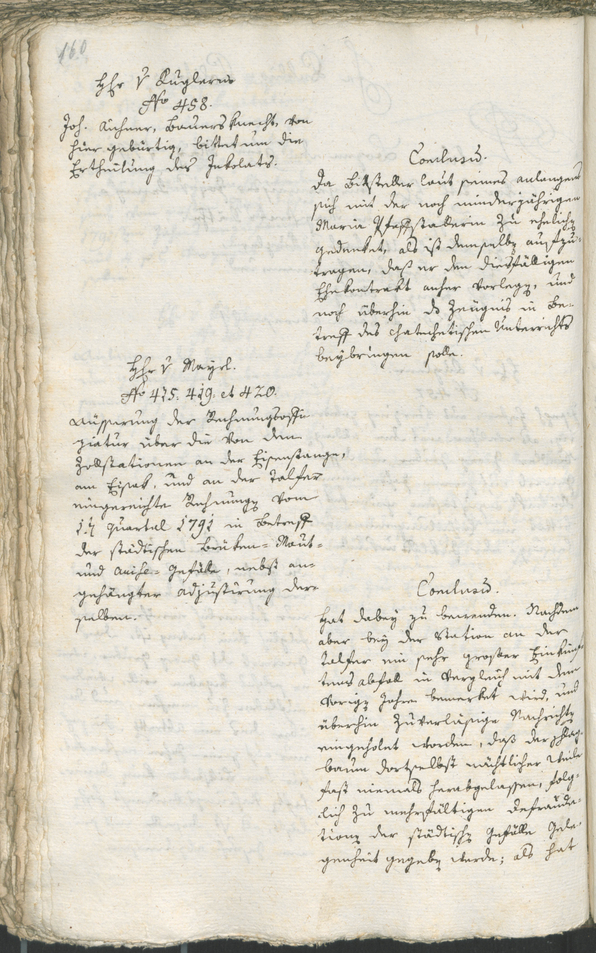 160
Hhr v Kuglern
No 458.
Joh. Kichner, Bauersknecht, von
hier gebürtig, bittet um die
Ertheilung des Inkolats.
Conclusu.
Da Bittsteller laut seines anlangens
sich mit der noch minderjährigen
Maria Pfaffstallerin zu ehelichen
gedenket, als ist demselben aufzu-
tragen, daß er den diesfälligen
Ehekontrakt anher vorlege, und
noch überhin das Zeugnis in Be-
treff des chatechetischen Unterrichts
beybringen solle.
Hhr v Mayrl.
No 415. 419. et 420.
Äusserung der Rechnungsoffi-
ziatur über die von den
Zollstationen an der Eisenstange,
am Eisak, und an der Talfer
eingereichte Rechnungen vom
1ten Quartal 1791 in Betreff
der städtischen Brüken- Maut-
und Gefälle, nebst an-
gehängter Adjustirung der-
selben.
Conclusu.
Hat dabey zu bewenden. Nachdem
aber bey der Station an der
Talfer ein sehr großer Einkünf-
tens abfall in Vergleich mit den
vorigen Jahren bemerket wird, und
überhin zuverläßige Nachrichten
eingeholet worden, daß der Schlag-
baum dortselbst nächtlicher Weile
fast niemals herabgelassen, folg-
lich zu mehrfältigen Defrauda-
tionen der städtischen Gefälle Gele-
genheit gegeben werde; als hat